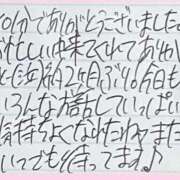 0分でありがとうございました。
忙しい中来てくれてありがとう
2ヶ月ぶり。今日も
いろんな話していっぱい
気持ちよくなれたねまた
いつでも待ってます♪